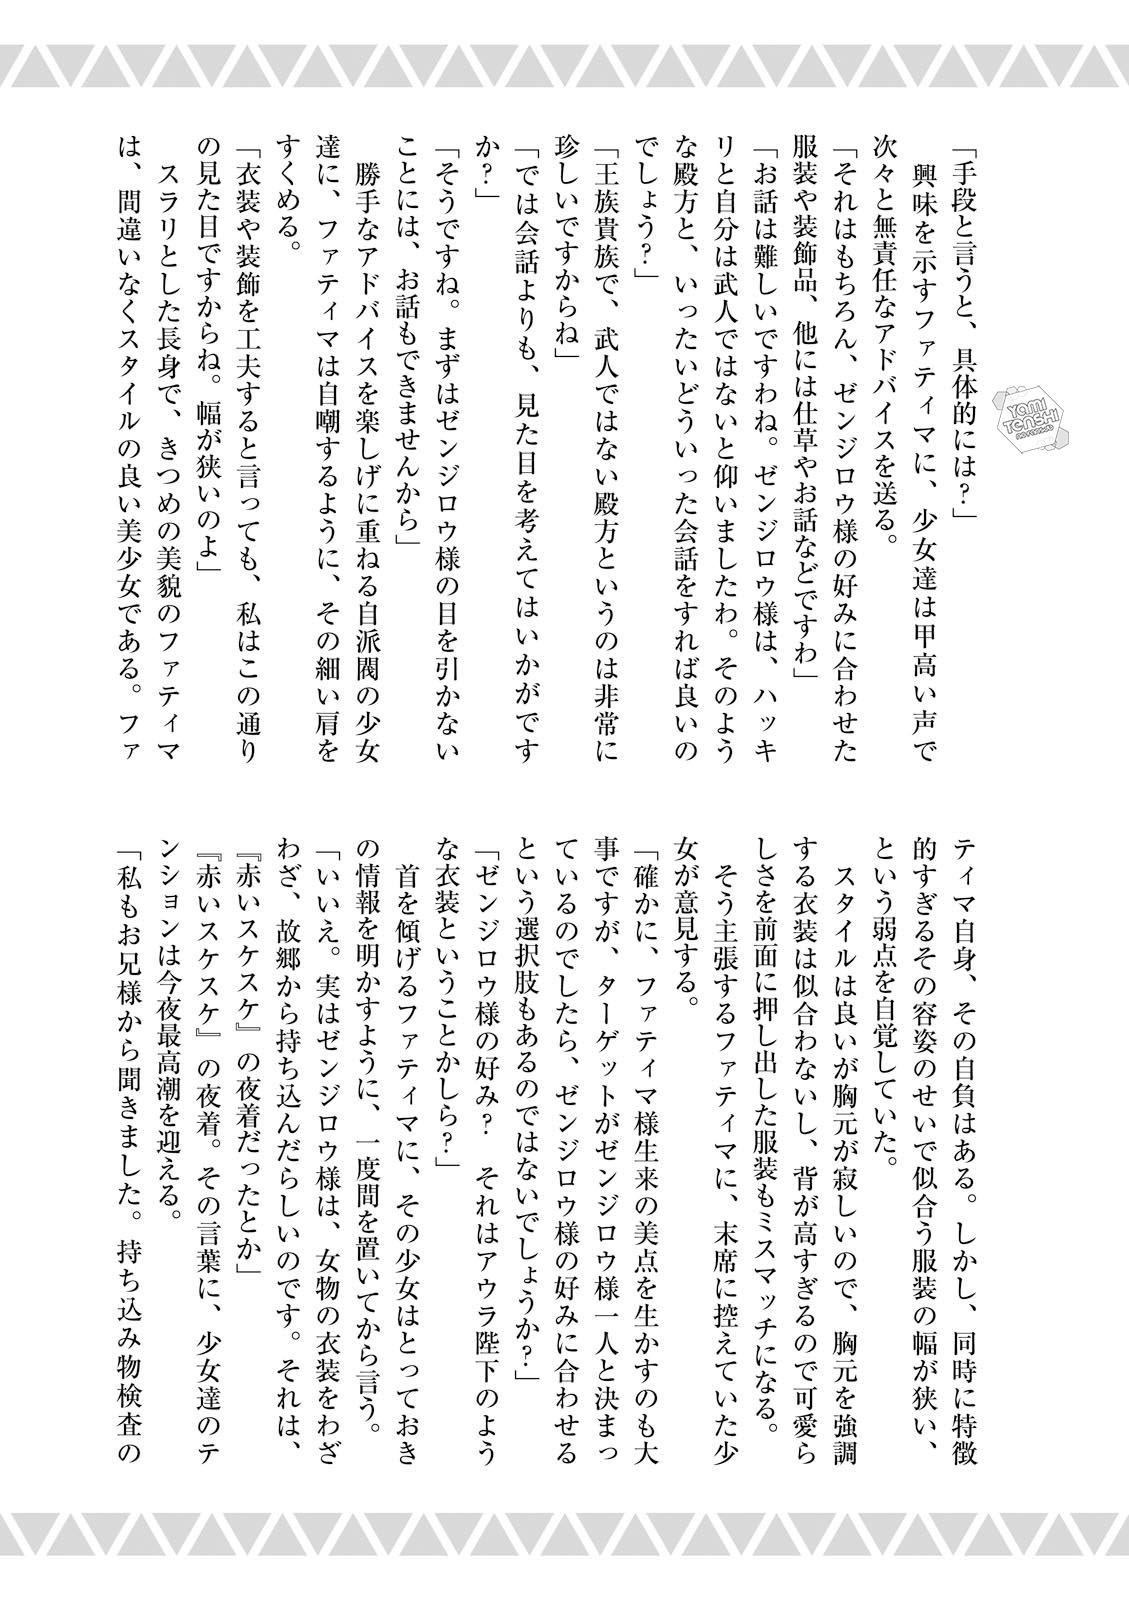 「手段と言うと、具体的には？」
　興味を示すファティマに、少女達は甲高い声で
次々と無責任なアドバイスを送る。
「それはもちろん、ゼンジロウ様の好みに合わせた
服装や装飾品、他には仕草やお話などですわ」
「お話は難しいですわね。ゼンジロウ様は、ハッキ
リと自分は武人ではないと仰いましたわ。そのよう
な殿方と、いったいどういった会話をすれば良いの
でしょう？」
「王族貴族で、武人ではない殿方というのは非常に
珍しいですからね」
「では会話よりも、見た目を考えてはいかがです
か？」
「そうですね。まずはゼンジロウ様の目を引かない
ことには、お話もできませんから」
　勝手なアドバイスを楽しげに重ねる自派閥の少女
達に、ファティマは自嘲するように、その細い肩を
すくめる。
「衣装や装飾を工夫すると言っても、私はこの通り
の見た目ですからね。幅が狭いのよ」
　スラリとした長身で、きつめの美貌のファティマ
は、間違いなくスタイルの良い美少女である。ファ
ティマ自身、その自負はある。しかし、同時に特徴
的すぎるその容姿のせいで似合う服装の幅が狭い、
という弱点を自覚していた。
　スタイルは良いが胸元が寂しいので、胸元を強調
する衣装は似合わないし、背が高すぎるので可愛ら
しさを前面に押し出した服装もミスマッチになる。
　そう主張するファティマに、末席に控えていた少
女が意見する。
「確かに、ファティマ様生来の美点を生かすのも大
事ですが、ターゲットがゼンジロウ様一人と決まっ
ているのでしたら、ゼンジロウ様の好みに合わせる
という選択肢もあるのではないでしょうか？」
「ゼンジロウ様の好み？　それはアウラ陛下のよう
な衣装ということかしら？」
　首を傾げるファティマに、その少女はとっておき
の情報を明かすように、一度間を置いてから言う。
「いいえ。実はゼンジロウ様は、女物の衣装をわざ
わざ、故郷から持ち込んだらしいのです。それは、
『赤いスケスケ』の夜着だったとか」
『赤いスケスケ』の夜着。その言葉に、少女達のテ
ンションは今夜最高潮を迎える。
「私もお兄様から聞きました。持ち込み物検査の
YAMI
TENSHI
no Fansub